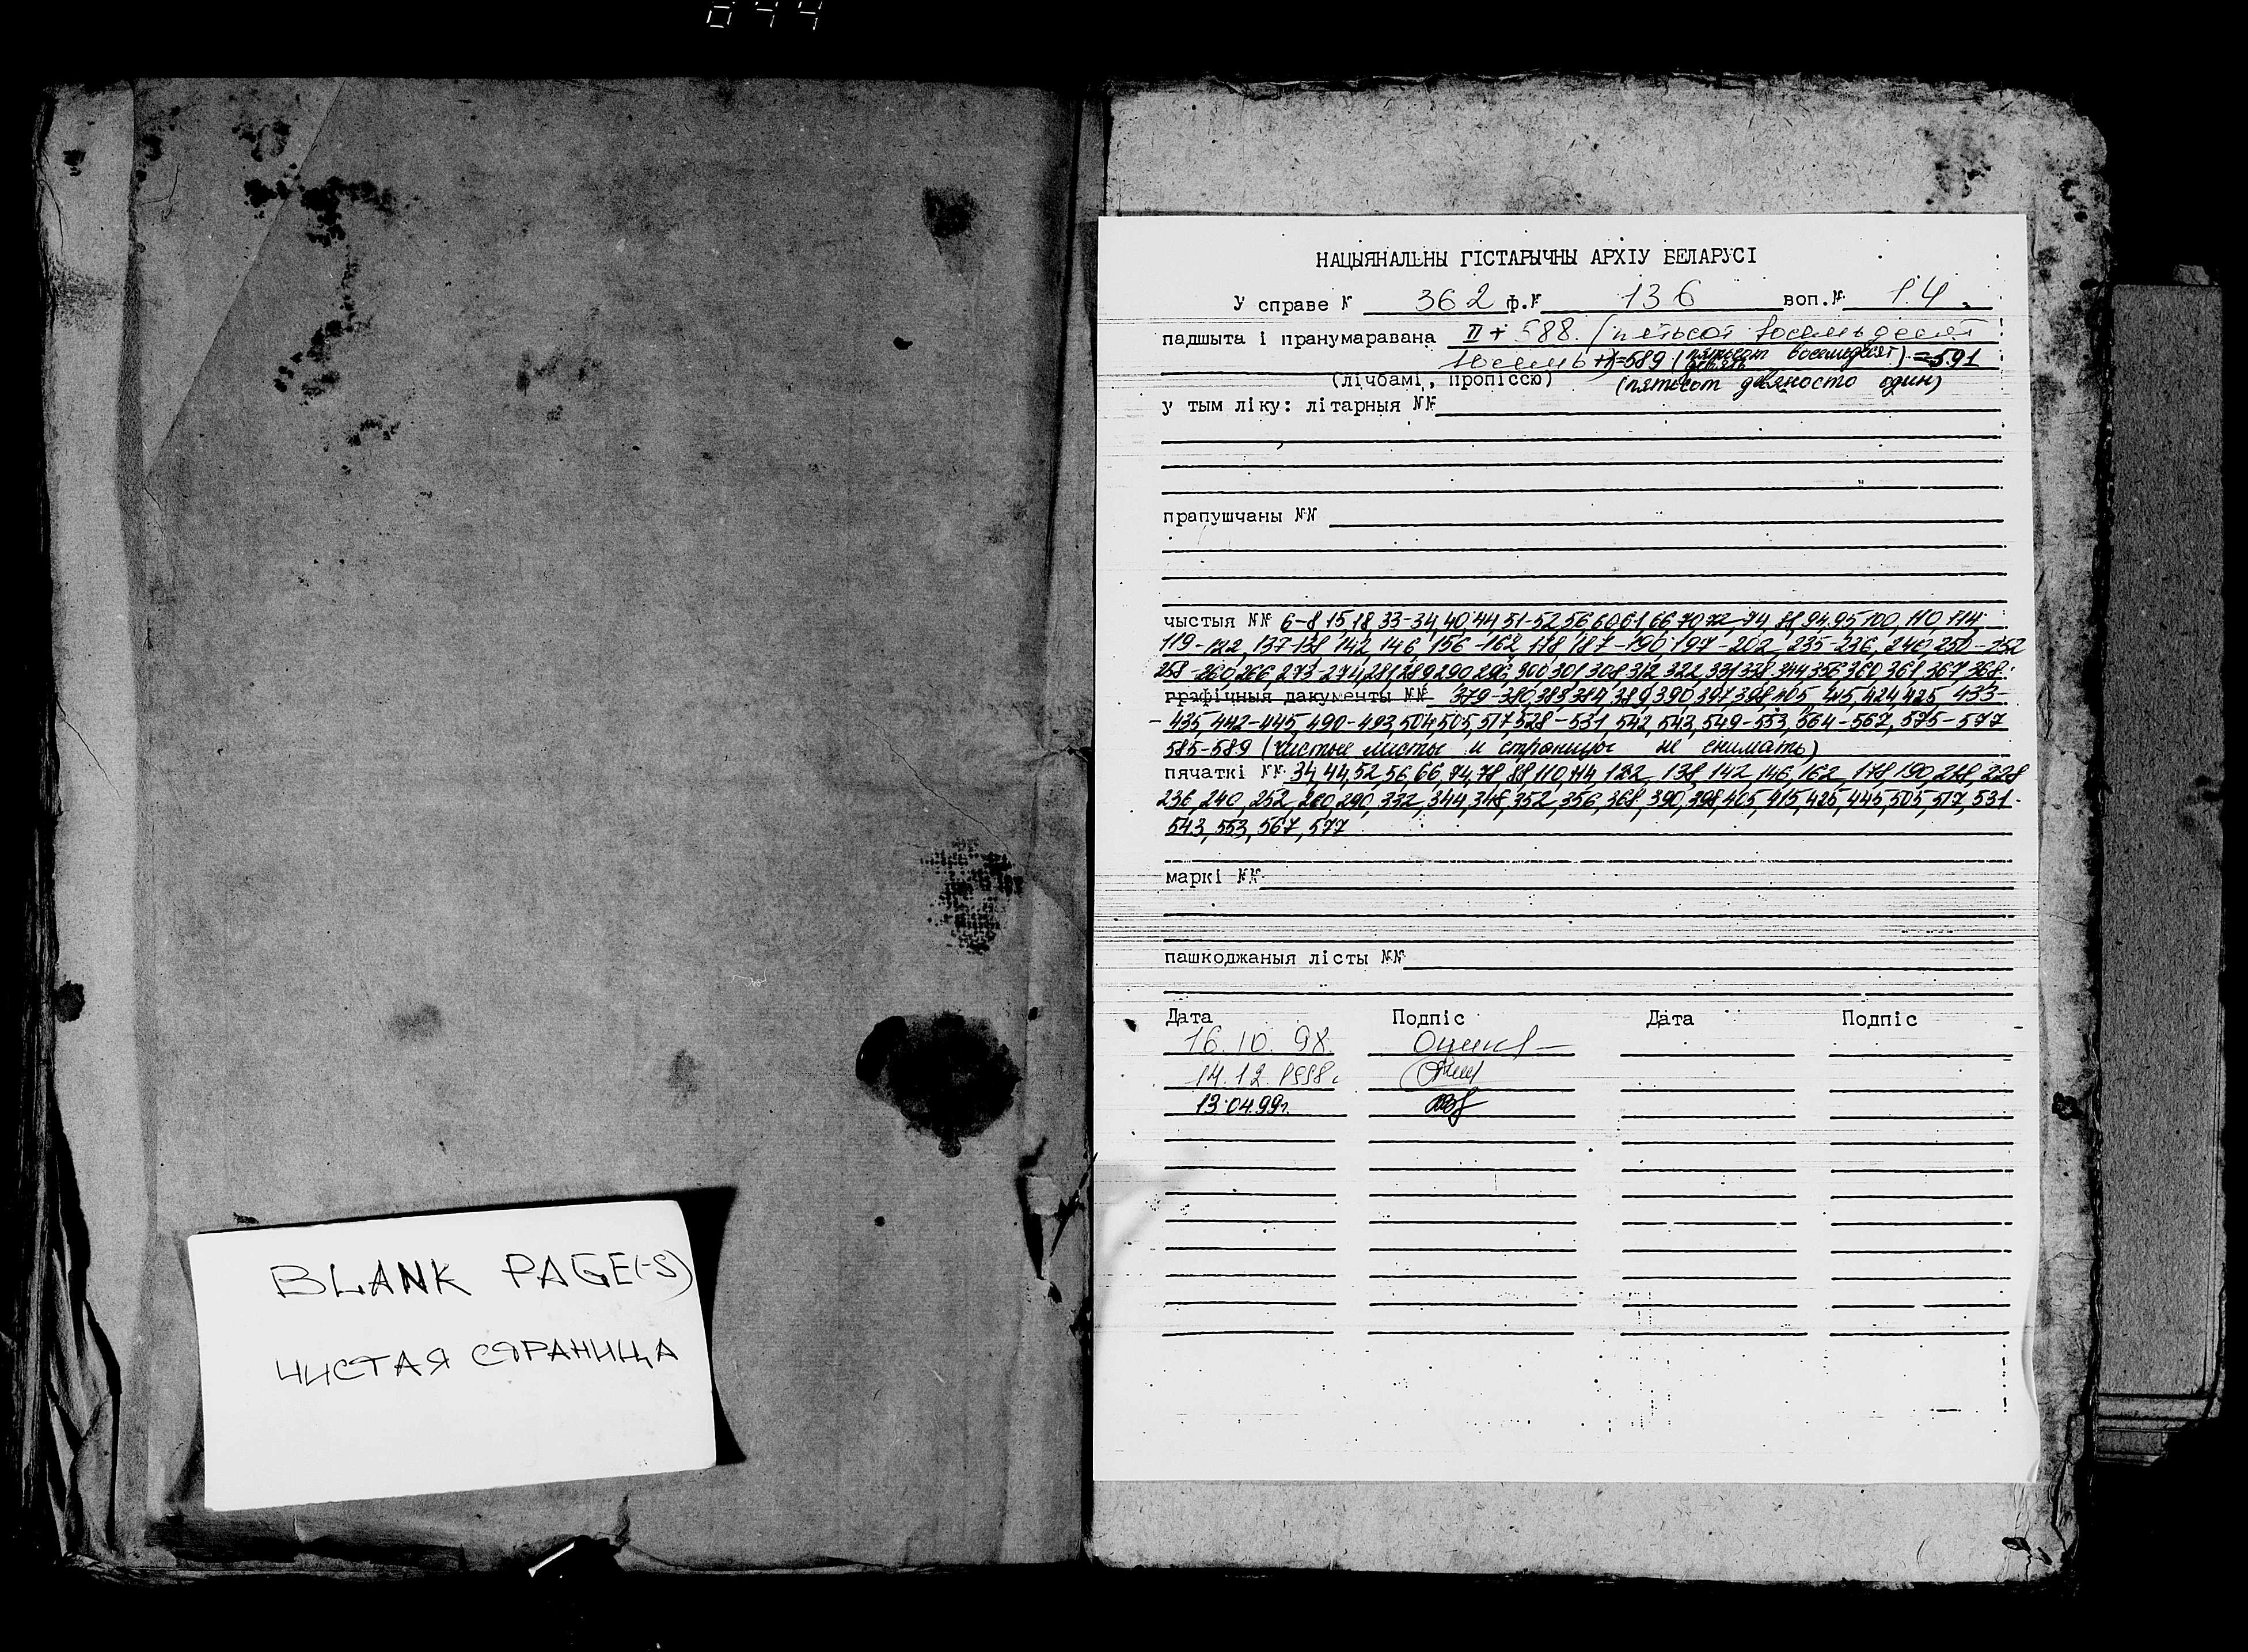 044
BLANK PAGE(-S)
ЧИСТАЯ СТРАНИЦА
НАЦЫЯНАЛЬНЫ ГІСТАРЫЧНЫ АРХІУ БЕЛАРУСІ
У справе № 362 ф.№ 136 воп.№
падшыта і пранумаравана II + 588. (пятьсот восемьдесят
восемь =589 (пятьсот восемьдесят девять) =591
(лічбамі, пропіссю) (пятьсот девяносто один)
у тым ліку: літарныя №№
прапушчаны №№
чыстыя №№ 6-8, 15, 18, 33-34, 40, 44, 51-52, 56, 60, 61, 66, 70, 72, 74, 94, 95, 100, 110, 114
119-122, 137-138, 142, 146, 156-162, 178, 187-190, 197-202, 235-236, 240, 250-252
258-260, 266, 273-274, 281, 289, 290, 296, 300, 301, 308, 312, 322, 331, 338, 344, 356, 360, 361, 367, 368
графічныя дакументы №№ 379-380, 383, 384, 389, 390, 397, 398, 405, 415, 424, 425, 433-
-435, 442-445, 490-493, 504, 505, 517, 528-531, 542, 543, 549-553, 564-567, 575-577
585-589 (чистые листы и страницы не снимать)
пячаткі №№ 34, 44, 52, 56, 66, 74, 78, 88, 110, 114, 122, 138, 142, 146, 162, 178, 190, 218, 228
236, 240, 252, 260, 290, 332, 344, 348, 352, 356, 368, 390, 398, 405, 415, 425, 445, 505, 517, 531
543, 553, 567, 577
маркі №№
пашкоджаныя лісты №№
Дата Подпіс Дата Подпіс
16.10.98
14.12.1998г
13.04.99г.